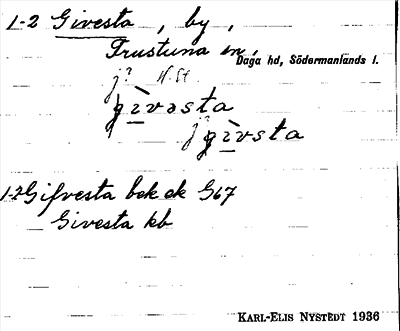 1-2 Givesta, by,
Frustuna sn, Daga hd, Södermanlands l.
j? N. St.
gìvəsta
j? gìvsta
1-2 Gifvesta bok ek G67
Givesta kb
KARL-ELIS NYSTEDT 1936